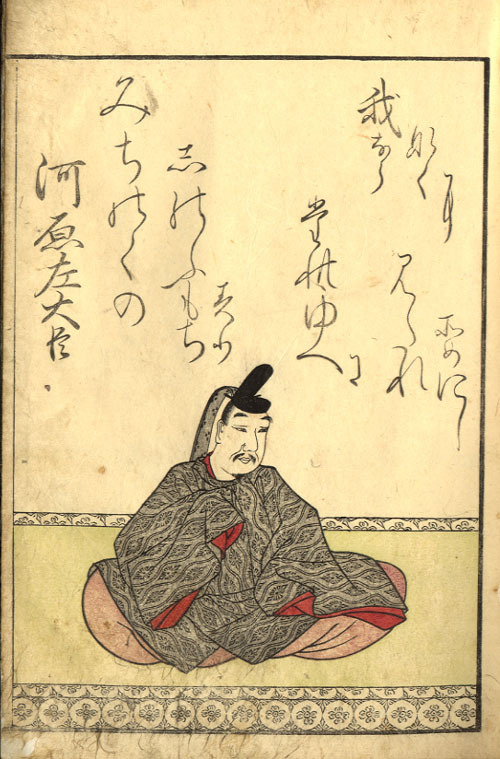 河原左大臣
みちのくの
しのふもち
すり
たれゆへ
に
みたれ
そめにし
我なら
なく
に